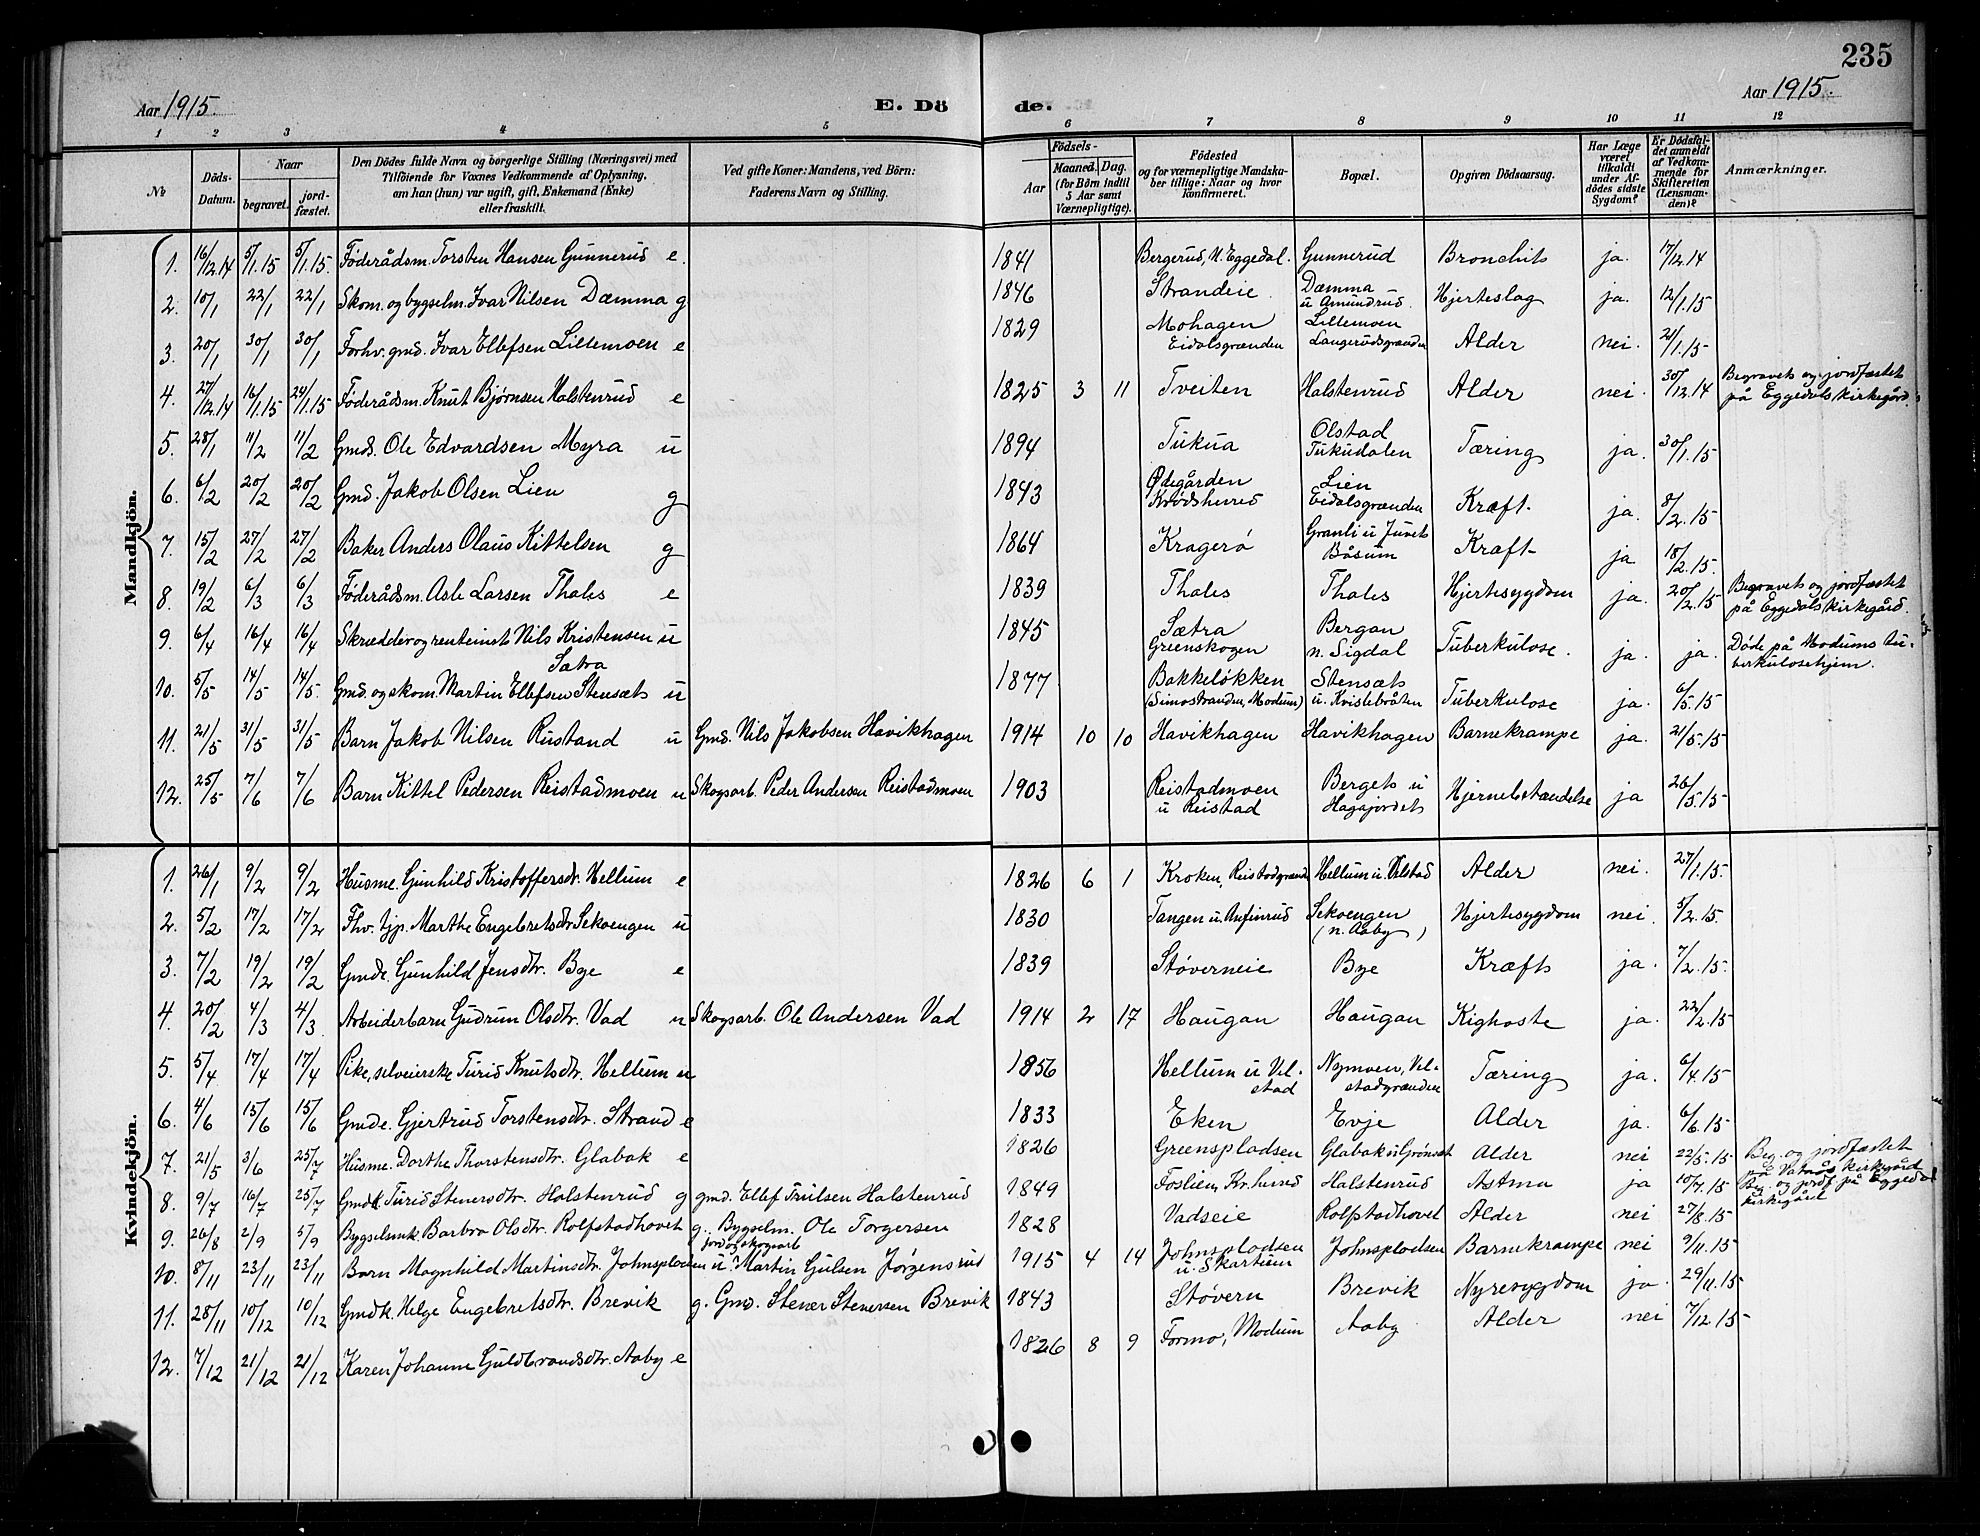 235
Aar 1915.
E. Dö de.
Aar 1915.
1 2 3 4 5 6 7 8 9 10 11 12
No
Döds-Datum.
Naar
begravet.
jord-fæstet.
Den Dödes fulde Navn og borgerlige Stilling (Næringsvei) med
Tilföiende for Voxnes Vedkommende af Oplysning,
om han (hun) var ugift, gift, Enkemand (Enke)
eller fraskilt.
Ved gifte Koner: Mandens, ved Börn:
Faderens Navn og Stilling.
Födsels-
Aar
Maaned. Dag.
(for Börn indtil
5 Aar samt
Værnepligtige).
Födested
og for værnepligtige Mandska-
ber tillige: Naar og hvor
konfirmeret.
Bopæl.
Opgiven Dödsaarsag.
Har Læge
været
tilkaldt
under Af-
dödes sidste
Sygdom?
Er Dödsfal-
det anmeldt
af Vedkom-
mende for
Skifteretten
(Lensman-
den)?
Anmærkninger.
Mandkjön.
1. 16/12.14 5/1.15 5/1.15. Föderådsm. Torsten Hansen Gunnerud e. 1841 Bergerud, N. Eggedal. Gunnerud Bronchit ja. 17/12.14
2. 10/1 22/1 22/1 Skom. og bygselm. Ivar Nilsen Dæmma g 1846 Strandeie Dæmma u Amundrud. Hjerteslag ja. 12/1.15
3. 20/1 30/1 30/1 Forhv. gmd. Ivar Ellefsen Lillemoen e 1829 Mohagen Eidalsgrænden Lillemoen Langerudsgrænden Alder nei. 21/1.15
4. 27/12.14 16/1.15 24/1.15 Föderådsm. Knut Bjørnsen Halstenrud e 1825 3 11 Tveiten Halstenrud Alder nei. 30/12.14 Begravet og jordfæstet
på Eggedals kirkegård.
5. 28/1 11/2 11/2 Gmds. Ole Edvardsen Myra u 1894 Tukua Olstad Tukudalen Tæring ja. 30/1.15
6. 6/2 20/2 20/2 Gmd. Jakob Olsen Lien g 1843 Ødegården Krødsherred Lien Eidalsgrænden Kræft. ja. 8/2.15
7. 15/2 27/2 27/2 Baker Anders Olaus Kittelsen g 1864 Kragerø Granli u Juvet Båsum Kræft ja 18/2.15.
8. 19/2 6/3 6/3 Föderådsm. Asle Larsen Thales e 1839 Thales Thales Hjertesygdom ja. 20/2.15 Begravet og jordfæstet
på Eggedals kirkegård.
9. 6/4 16/4 16/4 Skrædder og rentenist Nils Kristensen u
Sætra 1845 Sætra Greenskogen Bergan n. Sigdal Tuberkulose. ja. ja. Döde på Modums tu-
berkulosehjem.
10. 5/5 14/5 14/5. Gmd. og skom. Martin Ellefsen Stensæt u 1877 Bakkeløkken (Simostranden, Modum) Stensæt u. Kvislebråten Tuberkulose ja. 6/5.15
11. 21/5 31/5 31/5 Barn Jakob Nilsen Rustand u Gmd. Nils Jakobsen Havikhagen 1914 10 10 Havikhagen Havikhagen Barnekrampe ja. 21/5.15
12. 25/5 7/6 7/6 Barn Kittel Pedersen Reistadmoen u Skogsarb. Peder Andersen Reistadmoen 1903 Reistadmoen u Reistad Berget u Hagajordet Hjernebetændelse ja 26/5.15
Kvindekjön.
1. 26/1 9/2 9/2 Husme. Gunhild Kristoffersdtr. Hellum e 1826 6 1 Kroken, Reistadgrænden Hellum u. Velstad Alder nei. 27/1.15.
2. 5/2 17/2 17/2 Fhv. tjp. Marthe Engebretsdtr Sekoengen u 1830 Tangen u. Anfinrud Sekoengen (n. Aaby) Hjertesygdom nei. 5/2.15.
3. 7/2 19/2 19/2 Gmde. Gunhild Jensdtr. Bye e 1839 Støverneie Bye Kræft ja. 7/2.15.
4. 20/2 4/3 4/3 Arbeiderbarn Gudrun Olsdtr. Vad u Skogsarb. Ole Andersen Vad 1914 2 17 Haugan Haugan Kighoste ja. 22/2.15
5. 5/4 17/4 17/4 Pike, selveierske Turid Knutsdtr. Hellum u 1856 Hellum u Vel-stad Nymoen, Vel-stadgrænden Tæring ja. 6/4.15
6. 4/6 15/6 15/6 Gmde. Gjertrud Torstensdtr. Strand e 1833 Eken Evje Alder ja. 6/6.15
7. 21/5 3/6 25/7 Husme. Dorthe Thorstensdtr. Glabak e 1826 Greenspladsen Glabak u Grønset Alder nei 22/5.15 Beg. og jordfæstet
på Vatnås kirkegård
8. 9/7 16/7 25/7 Gmdk. Turid Stenersdtr. Halstenrud g gmd. Ellef Trulsen Halstenrud 1849 Foslien, Kr.herred Halstenrud Astma ja 10/7.15 Beg. og jordf. på Eggedal
kirkegård
9. 26/8 2/9 5/9 Bygselmk. Barbro Olsdtr. Rolfstadhovet g. Bygselm. Ole Torgersen 1828 Vadseie Rolfstadhovet Alder nei 27/8.15
10. 8/11 23/11 23/11 Barn Magnhild Martinsdtr. Johnspladsen u jord og skogsarb. Martin Gulsen Jørgensrud 1915 4 14 Johnspladsen u. Skartum Johnspladsen Barnekrampe nei 9/11.15
11. 28/11 10/12 10/12 Gmdk. Helge Engebretsdtr. Brevik g. Gmd. Stener Stenersen Brevik 1843 Støvern Brevik Nyresygdom ja. 29/11.15
12. 7/12 21/12 21/12 Karen Johanne Guldbrandsdtr. Aaby e 1826 8 9 Formo, Modum Aaby Alder nei 7/12.15